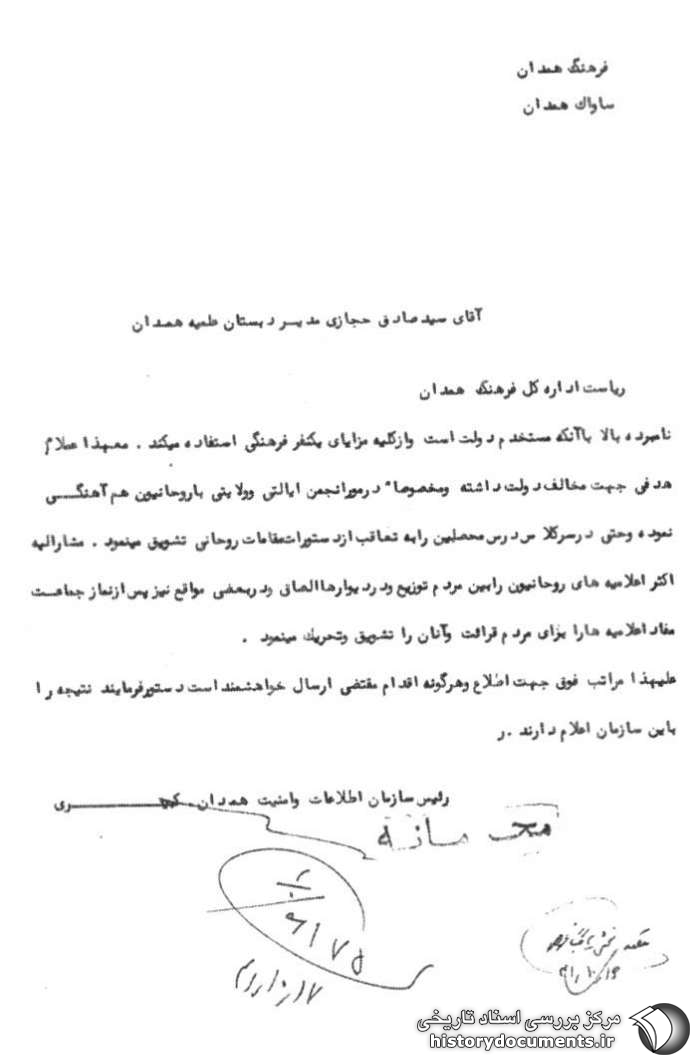 فرهنگ همدان
ساواك همدان
آقای سید صادق حجازی مدیر دبستان علمیه همدان
ریاست اداره کل فرهنگ همدان
نامبرده بالا باآنکه مستخدم دولت است وازکلیه مزایای یکنفر فرهنگی استفاده میکند . معهذا علاوم
هدفی جهت مخالف دولت داشته ومخصوصا" درمورانجمن ایالتی وولایتی باروحانیون هم آهنگی
نموده وحتی درسرکلاس درس محصلین رابه تعاقب ازدستورات مقامات روحانی تشویق مینمود . مشارالیه
اکثر اعلامیه های روحانیون رابین مردم توزیع ودردیوارها الصاق ودربعضی مواقع نیز پس ازنماز جماعت
مفاد اعلامیه هارا برای مردم قرائت وآنان را تشویق وتحریك مینمود .
علیهذا مراتب فوق جهت اطلاع وهرگونه اقدام مقتضی ارسال خواهشمند است دستورفرمایند نتیجه را
باین سازمان اعلام دارند .ر
رئیس سازمان اطلاعات وامنیت همدان.
محرمانه
۶۱۷۵
مرکز بررسی اسناد تاریخی
historydocuments.ir